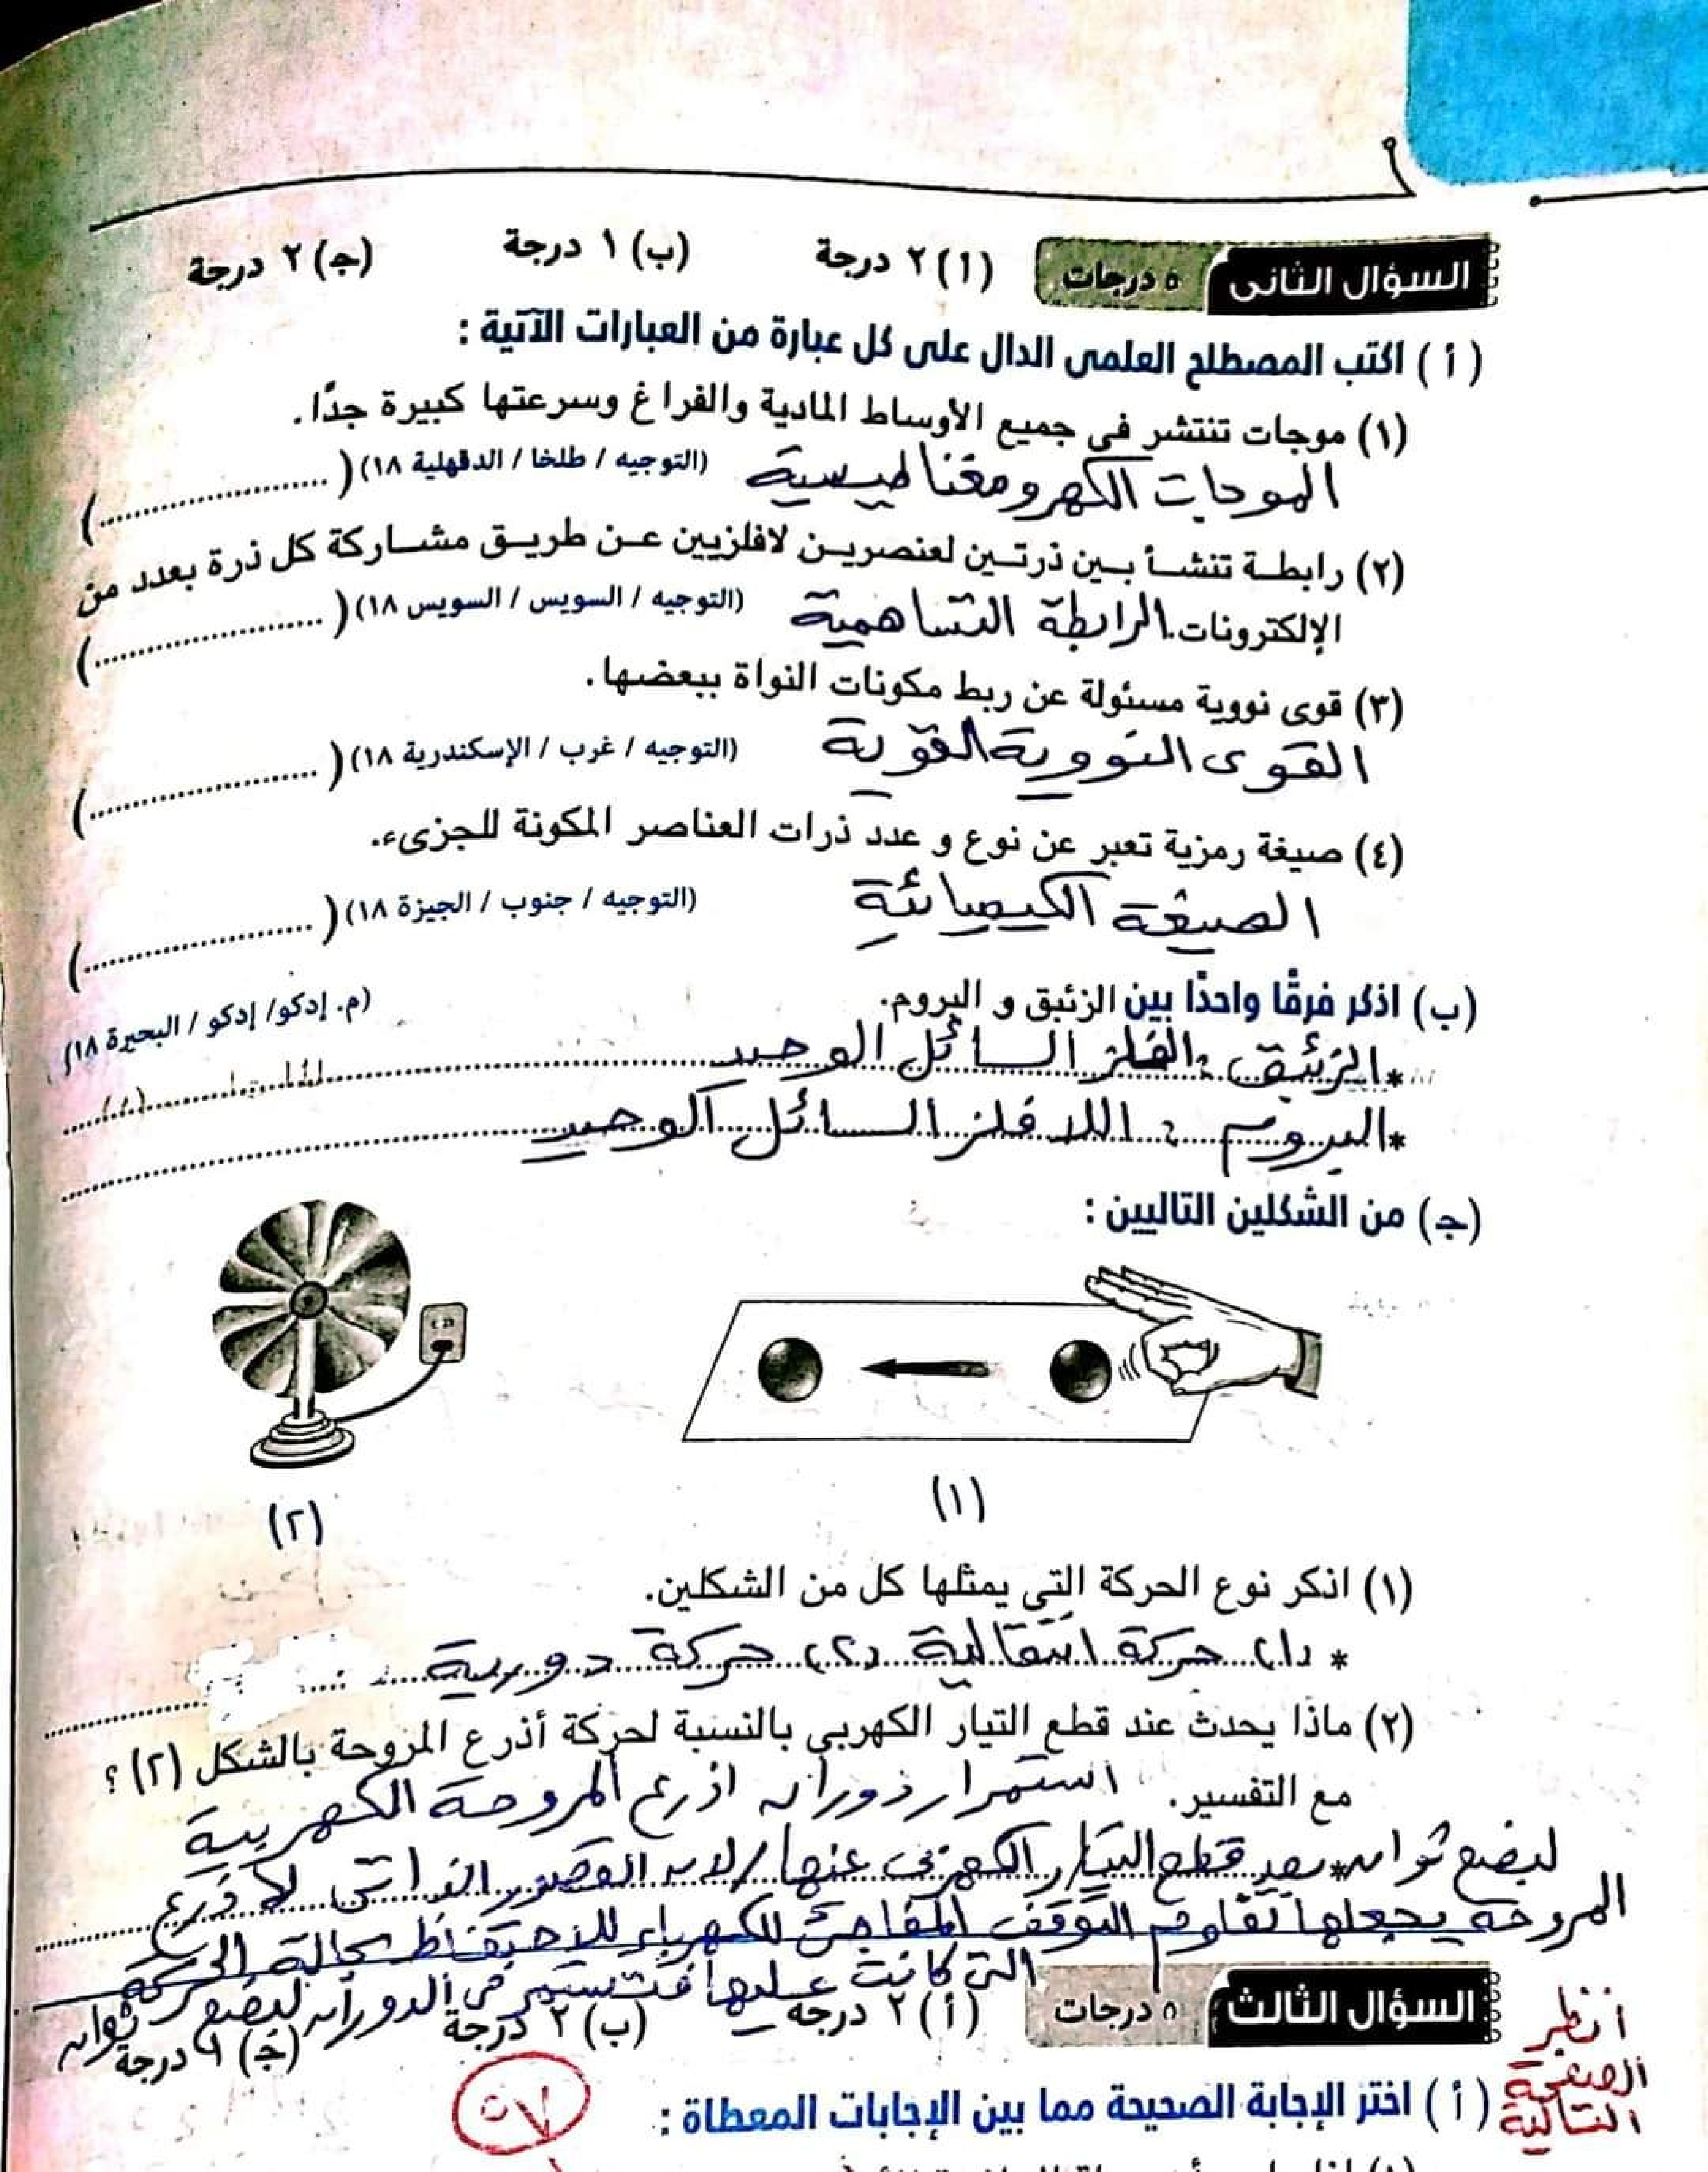 السؤال الثانى ٥ درجات (أ) ٢ درجة (ب) ١ درجة (جـ) ٢ درجة
(أ) اكتب المصطلح العلمى الدال على كل عبارة من العبارات الآتية :
(١) موجات تنتشر فى جميع الأوساط المادية والفراغ وسرعتها كبيرة جدًّا.
الموجات الكهرومغناطيسية (التوجيه / طلخا / الدقهلية ١٨) (....................)
(٢) رابطة تنشأ بين ذرتين لعنصرين لافلزيين عن طريق مشاركة كل ذرة بعدد من
الإلكترونات. الرابطة التساهمية (التوجيه / السويس / السويس ١٨) (....................)
(٣) قوى نووية مسئولة عن ربط مكونات النواة ببعضها.
القوى النووية القوية (التوجيه / غرب / الإسكندرية ١٨) (....................)
(٤) صيغة رمزية تعبر عن نوع و عدد ذرات العناصر المكونة للجزىء.
الصيغة الكيميائية (التوجيه / جنوب / الجيزة ١٨) (....................)
(ب) اذكر فرقًا واحدًا بين الزئبق و البروم. (م. إدكو/ إدكو / البحيرة ١٨)
*الزئبق : الفلز السائل الوحيد
*البروم : اللافلز السائل الوحيد
(جـ) من الشكلين التاليين :
(١) (٢)
(١) اذكر نوع الحركة التى يمثلها كل من الشكلين.
* (١) حركة انتقالية (٢) حركة دورية
(٢) ماذا يحدث عند قطع التيار الكهربى بالنسبة لحركة أذرع المروحة بالشكل (٢) ؟
مع التفسير. استمرار دوران اذرع المروحة الكهربية
لبضع ثوان بعد قطع التيار الكهربى عنها / لان القصور الذاتى لاذرع
المروحة يجعلها تقاوم التوقف المفاجئ للكهرباء للاحتفاظ بحالة الحركة
التى كانت عليها فتستمر فى الدوران لبضع ثوان
السؤال الثالث ٥ درجات (أ) ٢ درجة (ب) ٢ درجة (جـ) ١ درجة
انظر
الصفحة
التالية
(أ) اختر الإجابة الصحيحة مما بين الإجابات المعطاة :
٥٧